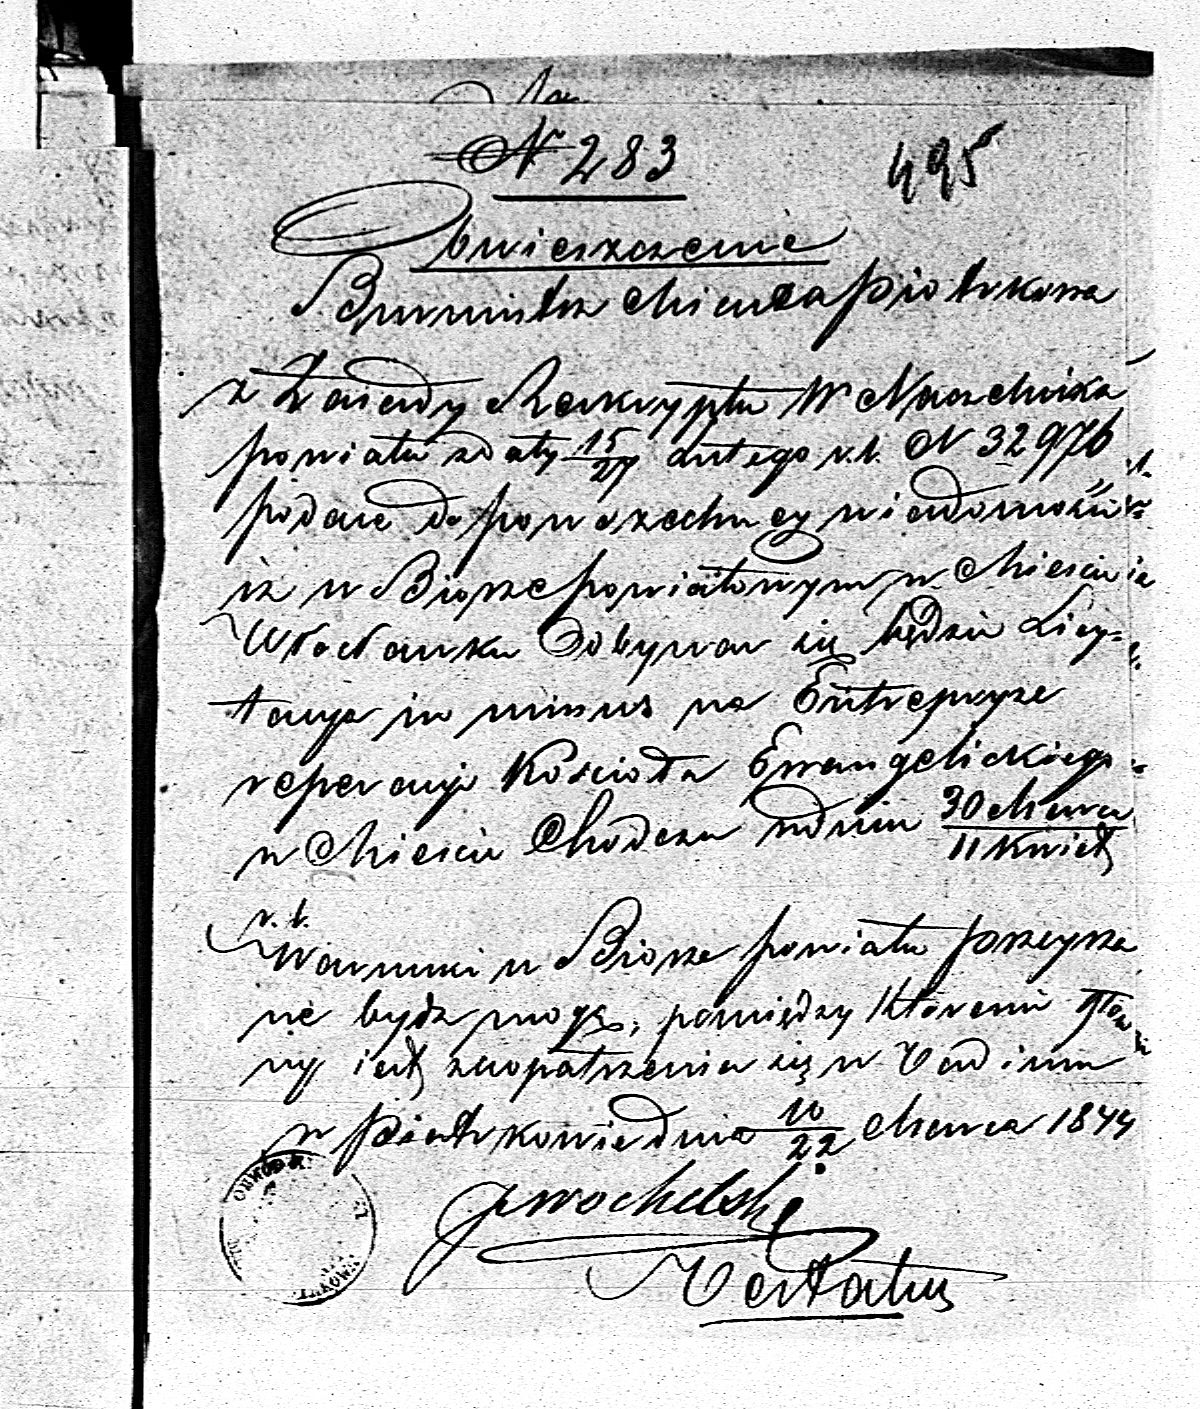 N 283
495
Obwieszczenie
Burmistrz Miasta Piotrkowa
z Zasady Reskryptu W Naczelnika
powiatu z daty 15/27 Lutego r. b. N 32976
podaie do powszechney wiadomości
iż w Biorze powiatowym w Mieście
Włocławku Odbywać się będzie Licy=
tacya in minus na Entrepryze
reperacyi Kościoła Ewangelickiego
w Mieście Chodczu w dniu 30 Marca/11 Kwiet
r. b.
Warunki w Biorze powiatu przeyrza
ne bydź mogą, pomiędzy któremi głów
ny iest zaopatrzenia się w Vadium
w Piotrkowie dnia 10/22 Marca 1844